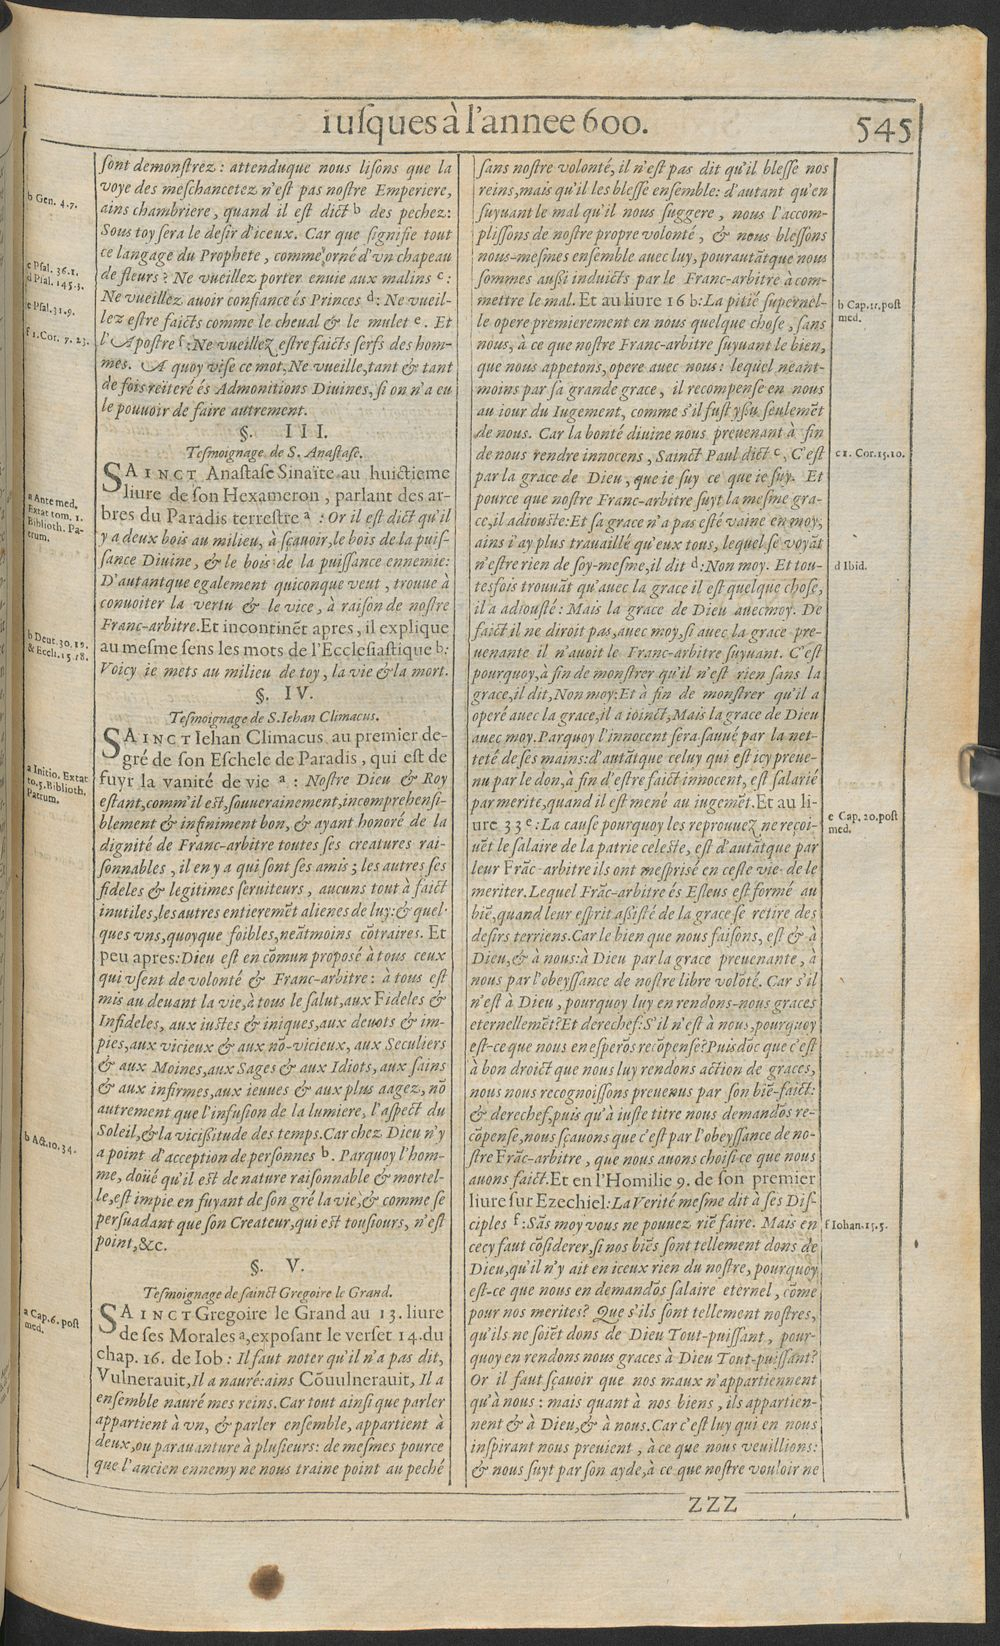 iuſques à l'annee 600.
545
ſont demonſtrez : attenduque nous liſons que la
voye des meſchancetez n'eſt pas noſtre Emperiere,
ains chambriere, quand il eſt dićt b des pechez:
Sous toy ſera le deſir d'iceux. Car que ſignifie tout
ce langage du Prophete, comme orné d'vn chapeau
de fleurs? Ne vueillez porter enuie aux malins c:
Ne vueillez auoir confiance és Princes d: Ne vueil-
lez eſtre faićts comme le cheual & le mulet e. Et
l'Apoſtre f: Ne vueillez eſtre faićts ſerfs des hom-
mes. A quoy viſe ce mot, Ne vueille, tant & tant
de fois reiteré és Admonitions Diuines, ſi on n'a eu
le pouuoir de faire autrement.
§. III.
Teſmoignage de S. Anaſtaſe.
SAINCT Anaſtaſe Sinaïte au huictieme
liure de ſon Hexameron, parlant des ar-
bres du Paradis terreſtre a : Or il eſt dićt qu'il
y a deux bois au milieu, à ſçauoir, le bois de la puiſ-
ſance Diuine, & le bois de la puiſſance ennemie:
D'autantque egalement quiconque veut, trouue à
conuoiter la vertu & le vice, à raiſon de noſtre
Franc-arbitre. Et incontinẽt apres, il explique
au meſme ſens les mots de l'Eccleſiaſtique b:
Voicy ie mets au milieu de toy, la vie & la mort.
§. IV.
Teſmoignage de S. Iehan Climacus.
SAINCT Iehan Climacus au premier de-
gré de ſon Eſchele de Paradis, qui eſt de
fuyr la vanité de vie a : Noſtre Dieu & Roy
eſtant, comm'il eſt, ſouuerainement, incomprehenſi-
blement & infiniment bon, & ayant honoré de la
dignité de Franc-arbitre toutes ſes creatures rai-
ſonnables, il en y a qui ſont ſes amis; les autres ſes
fideles & legitimes ſeruiteurs, aucuns tout à faićt
inutiles, les autres entieremẽt alienes de luy: & quel-
ques vns, quoyque foibles, neãtmoins cõtraires. Et
peu apres: Dieu eſt en cõmun proposé à tous ceux
qui vſent de volonté & Franc-arbitre: à tous eſt
mis au deuant la vie, à tous le ſalut, aux Fideles &
Infideles, aux iuſtes & iniques, aux deuots & im-
pies, aux vicieux & aux nõ-vicieux, aux Seculiers
& aux Moines, aux Sages & aux Idiots, aux ſains
& aux infirmes, aux ieunes & aux plus aagez, nõ
autrement que l'infuſion de la lumiere, l'aſpećt du
Soleil, & la viciſſitude des temps. Car chez Dieu n'y
a point d'acception de perſonnes b. Parquoy l'hom-
me, doüé qu'il eſt de nature raiſonnable & mortel-
le, eſt impie en fuyant de ſon gré la vie, & comme ſe
perſuadant que ſon Createur, qui eſt touſiours, n'eſt
point, &c.
§. V.
Teſmoignage de ſainćt Gregoire le Grand.
SAINCT Gregoire le Grand au 13. liure
de ſes Morales a, expoſant le verſet 14. du
chap. 16. de Iob: Il faut noter qu'il n'a pas dit,
Vulnerauit, Il a nauré: ains Cõuulnerauit, Il a
enſemble nauré mes reins. Car tout ainſi que parler
appartient à vn, & parler enſemble, appartient à
deux, ou parauanture à pluſieurs: de meſmes pource
que l'ancien ennemy ne nous traine point au peché
b Gen. 4.7.
c Pſal. 36.1.
d Pſal. 145.3.
e Pſal. 31.9.
f 1. Cor. 7. 23.
a Ante med.
Extat tom. 1.
Biblioth. Pa-
trum.
b Deut. 30. 19.
& Eccli. 15.18.
a Initio. Extat
to. 5. Biblioth.
Patrum.
b Act. 10. 34.
a Cap. 6. poſt
med.
ſans noſtre volonté, il n'eſt pas dit qu'il bleſſe nos
reins, mais qu'il les bleſſe enſemble: d'autant qu'en
ſuyuant le mal qu'il nous ſuggere, nous l'accom-
pliſſons de noſtre propre volonté, & nous bleſſons
nous-meſmes enſemble auec luy, pourautãt que nous
ſommes auſſi induićts par le Franc-arbitre à com-
mettre le mal. Et au liure 16 b: La pitié ſupernel-
le opere premierement en nous quelque choſe, ſans
nous, à ce que noſtre Franc-arbitre ſuyuant le bien,
que nous appetons, opere auec nous: lequel neant-
moins par ſa grande grace, il recompenſe en nous
au iour du Iugement, comme s'il fuſt yſſu ſeulemẽt
de nous. Car la bonté diuine nous preuenant à fin
de nous rendre innocens, Sainćt Paul dićt c, C'eſt
par la grace de Dieu, que ie ſuy ce que ie ſuy. Et
pource que noſtre Franc-arbitre ſuyt la meſme gra-
ce, il adiouſte: Et ſa grace n'a pas eſté vaine en moy,
ains i'ay plus trauaillé qu'eux tous, lequel ſe voyãt
n'eſtre rien de ſoy-meſme, il dit d: Non moy. Et tou-
tesfois trouuãt qu'auec la grace il eſt quelque choſe,
il a adiouſté: Mais la grace de Dieu auec moy. De
faićt il ne diroit pas, auec moy, ſi auec la grace pre-
uenante il n'auoit le Franc-arbitre ſuyuant. C'eſt
pourquoy, à fin de monſtrer qu'il n'eſt rien ſans la
grace, il dit, Non moy: Et à fin de monſtrer qu'il a
operé auec la grace, il a ioinćt, Mais la grace de Dieu
auec moy. Parquoy l'innocent ſera ſauué par la net-
teté de ſes mains: d'autãt que celuy qui eſt icy preue-
nu par le don, à fin d'eſtre faićt innocent, eſt ſalarié
par merite, quand il eſt mené au iugemẽt. Et au li-
ure 33 e: La cauſe pourquoy les reprouuez ne reçoi-
uẽt le ſalaire de la patrie celeſte, eſt d'autãt que par
leur Frãc-arbitre ils ont meſprisé en ceſte vie de le
meriter. Lequel Frãc-arbitre és Eſleus eſt formé au
biẽ, quand leur eſprit aſſiſté de la grace ſe retire des
deſirs terriens. Car le bien que nous faiſons, eſt & à
Dieu, & à nous: à Dieu par la grace preuenante, à
nous par l'obeyſſance de noſtre libre volõté. Car s'il
n'eſt à Dieu, pourquoy luy en rendons-nous graces
eternellemẽt? Et derechef: S'il n'eſt à nous, pourquoy
eſt-ce que nous en eſperõs recõpenſe? Puis dõc que c'eſt
à bon droićt que nous luy rendons action de graces,
nous nous recognoiſſons preuenus par ſon biẽ-faićt:
& derechef, puis qu'à iuſte titre nous demandõs re-
cõpenſe, nous ſçauons que c'eſt par l'obeyſſance de no-
ſtre Frãc-arbitre, que nous auons choiſi ce que nous
auons faićt. Et en l'Homilie 9. de ſon premier
liure ſur Ezechiel: La Verité meſme dit à ſes Diſ-
ciples f: Sãs moy vous ne pouuez riẽ faire. Mais en
cecy faut cõſiderer, ſi nos biẽs ſont tellement dons de
Dieu, qu'il n'y ait en iceux rien du noſtre, pourquoy
eſt-ce que nous en demandõs ſalaire eternel, cõme
pour nos merites? Que s'ils ſont tellement noſtres,
qu'ils ne ſoiẽt dons de Dieu Tout-puiſſant, pour-
quoy en rendons nous graces à Dieu Tout-puiſſant?
Or il faut ſçauoir que nos maux n'appartiennent
qu'à nous: mais quant à nos biens, ils appartien-
nent & à Dieu, & à nous. Car c'eſt luy qui en nous
inſpirant nous preuient, à ce que nous veuillions:
& nous ſuyt par ſon ayde, à ce que noſtre vouloir ne
b Cap. 11. poſt
med.
c 1. Cor. 15. 10.
d Ibid.
e Cap. 20. poſt
med.
f Iohan. 15. 5.
ZZZ